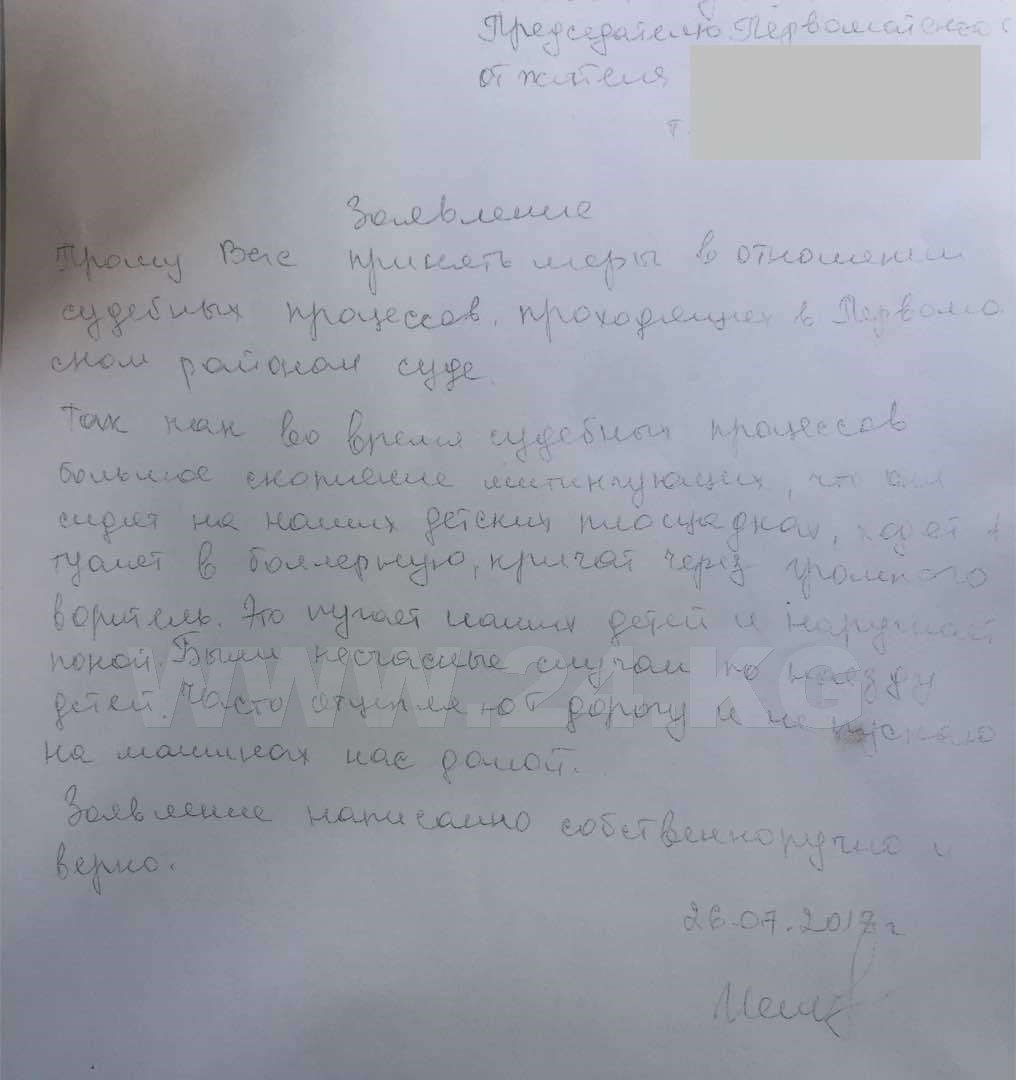 Председателю Первомайского
от жителя
т.
Заявление
Прошу Вас принять меры в отношении
судебных процессов, проходящих в Первома
ском районом суде.
Так как во время судебных процессов
большое скопление митингующих, что они
сидят на наших детских площадках, ходят в
туалет в боллерную, кричат через громкого
воритель. Это пугает наших детей и нарушает
покой. Были несчасные случаи по наезду
детей. Часто отцепляют дорогу и не пускаю
на машинах нас домой.
Заявление написанно собственноручно и
верно.
26.07.2017г
www.24.KG